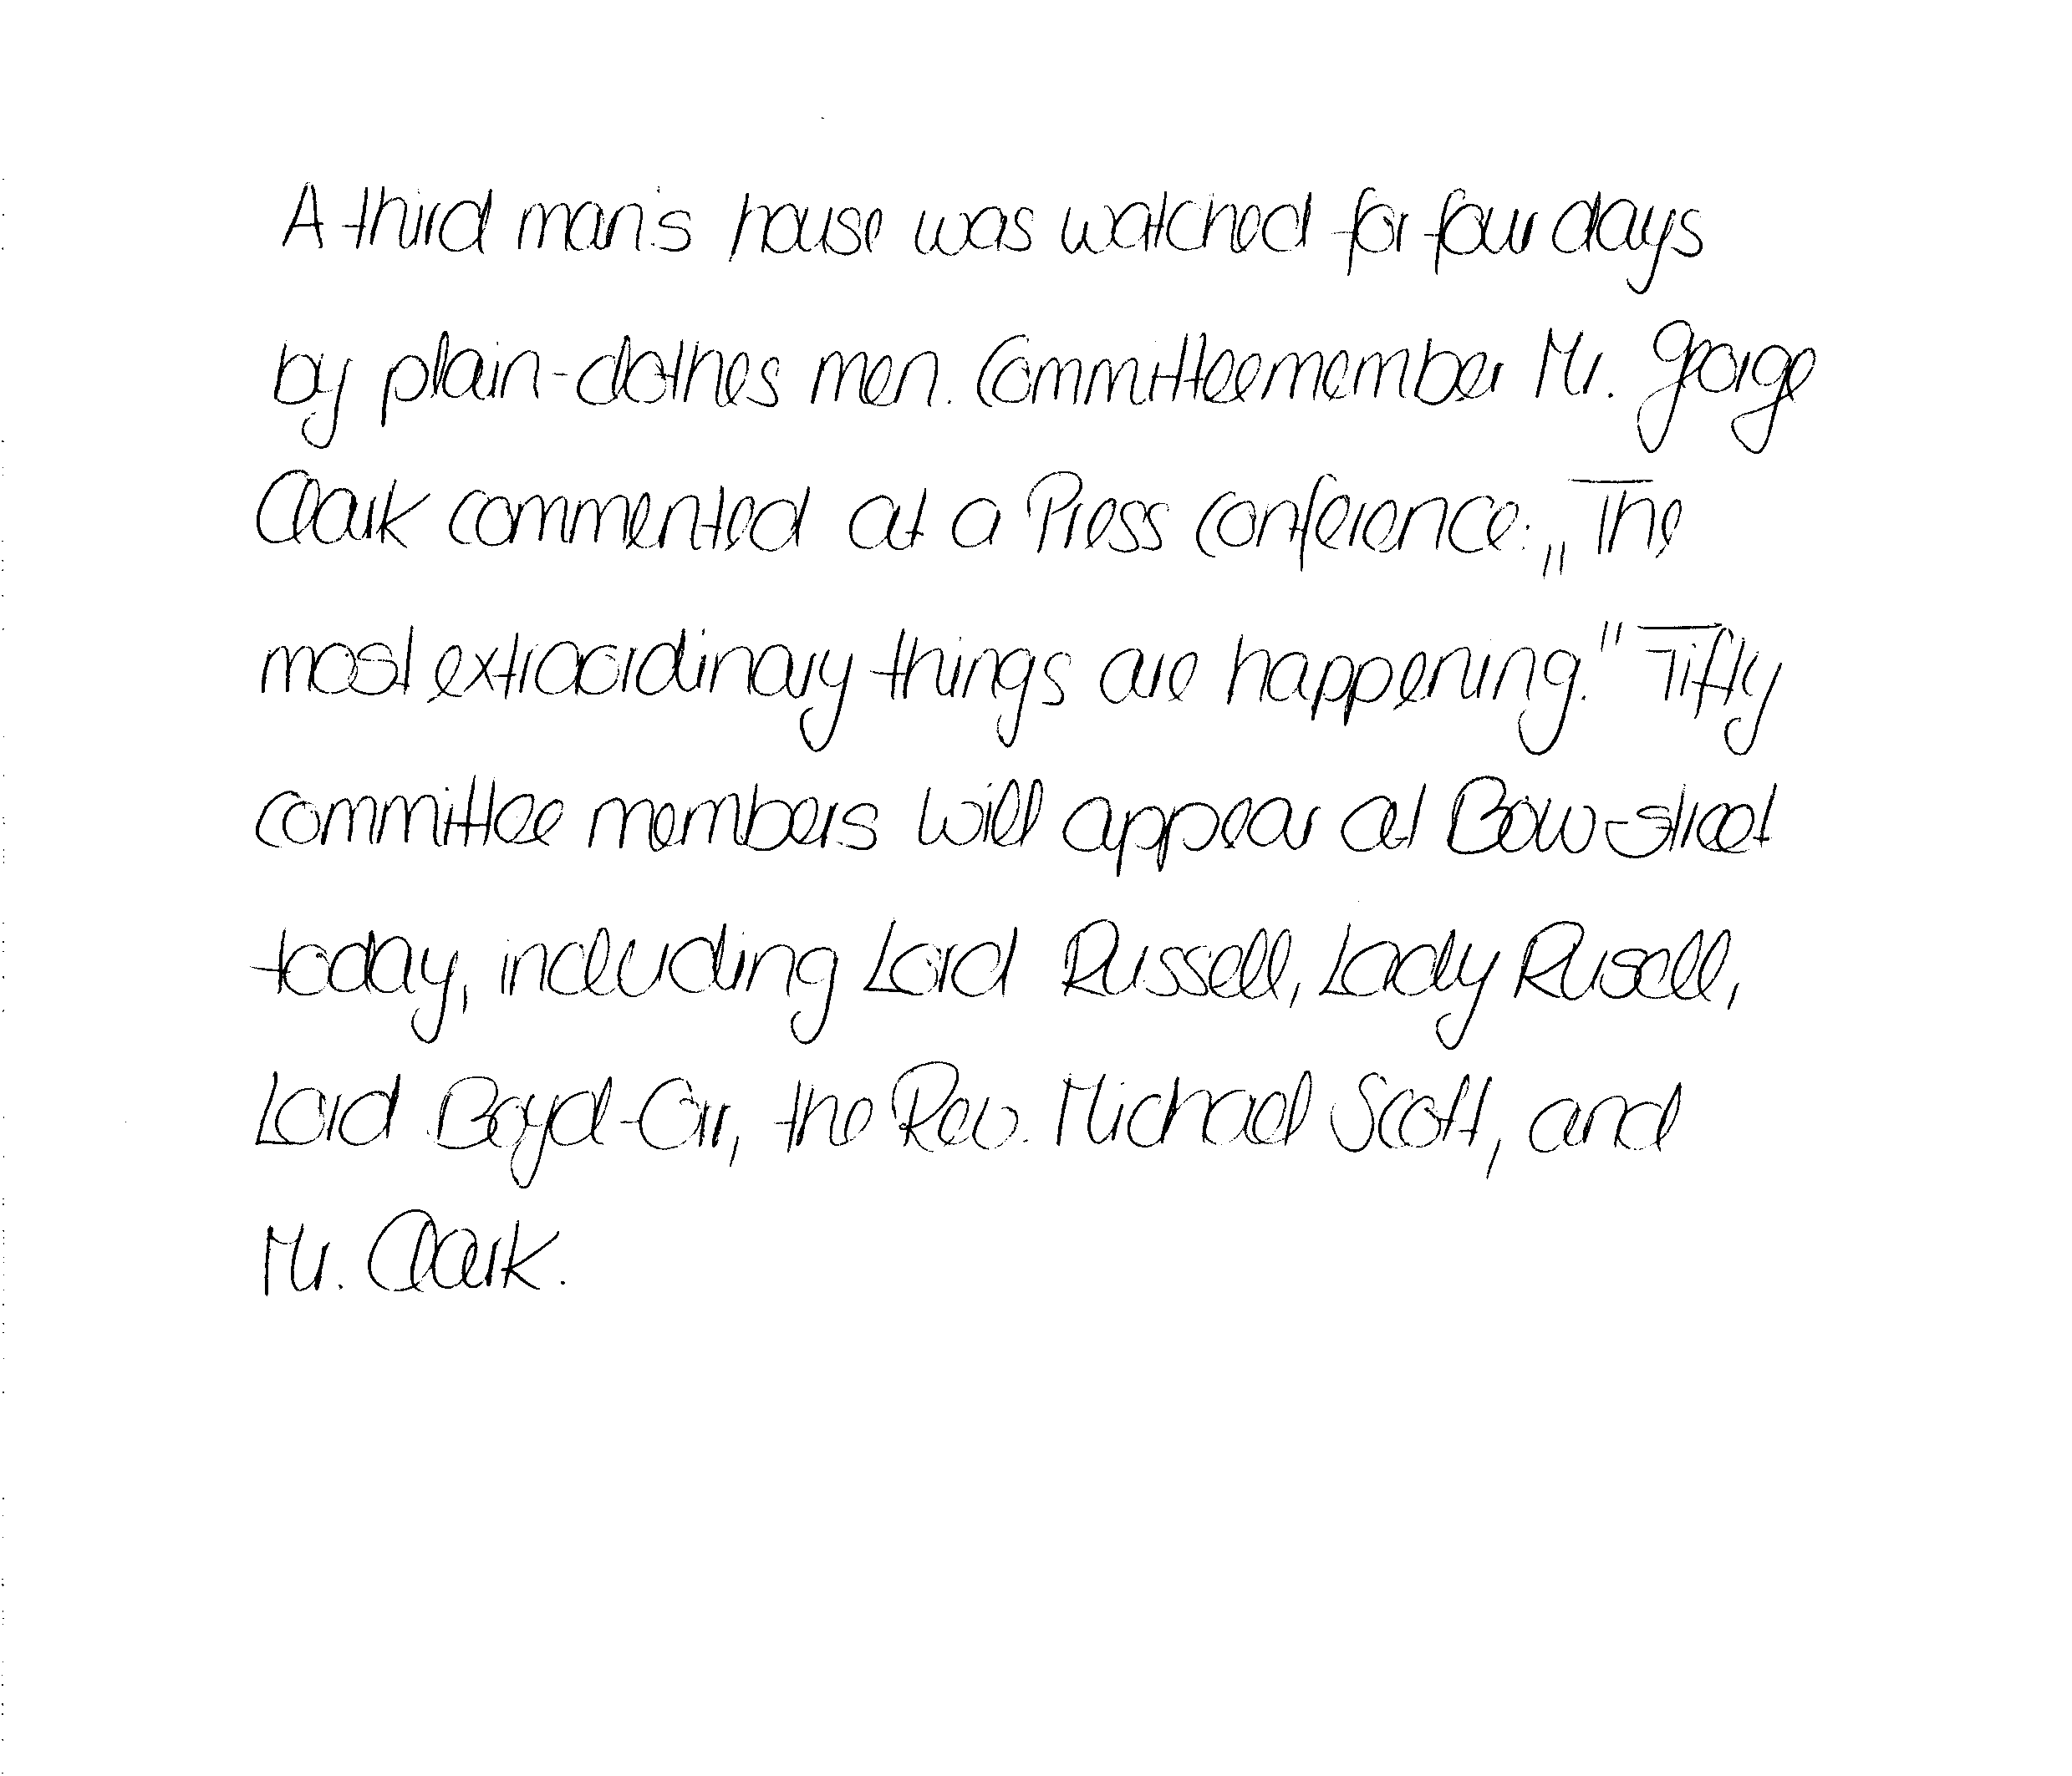 A third man's house was watched for four days
by plain-clothes men. Committeemember Mr. George
Clark commented at a Press conference: „The
most extraordinary things are happening." Fifty
committee members will appear at Bow-street
today, including Lord Russell, Lady Rusell,
Lord Boyd-Orr, the Rev. Michael Scott, and
Mr. Clark.